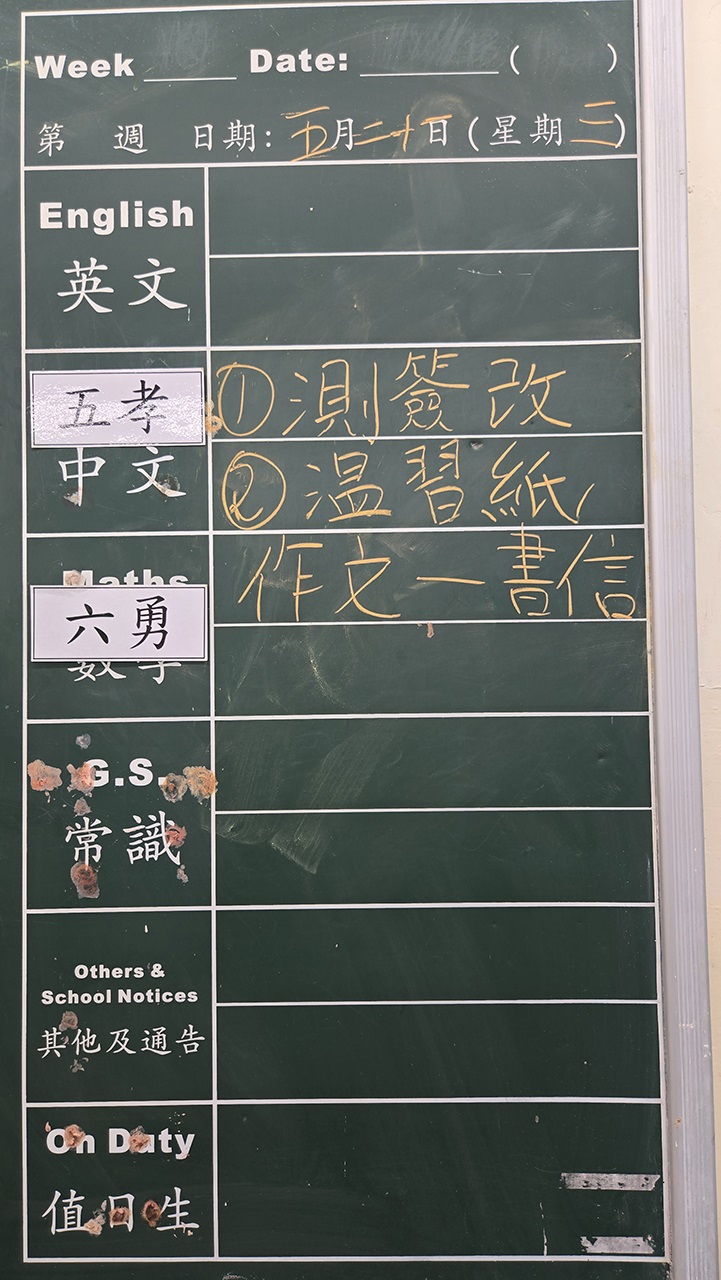 Week ____ Date: ______ ( )
第 週 日期: 五月二十日 (星期三)
English
英文
五孝
①測簽改
中文
②温習紙
Maths
作文一書信
六勇
數學
G.S.
常識
Others &
School Notices
其他及通告
On Duty
值日生